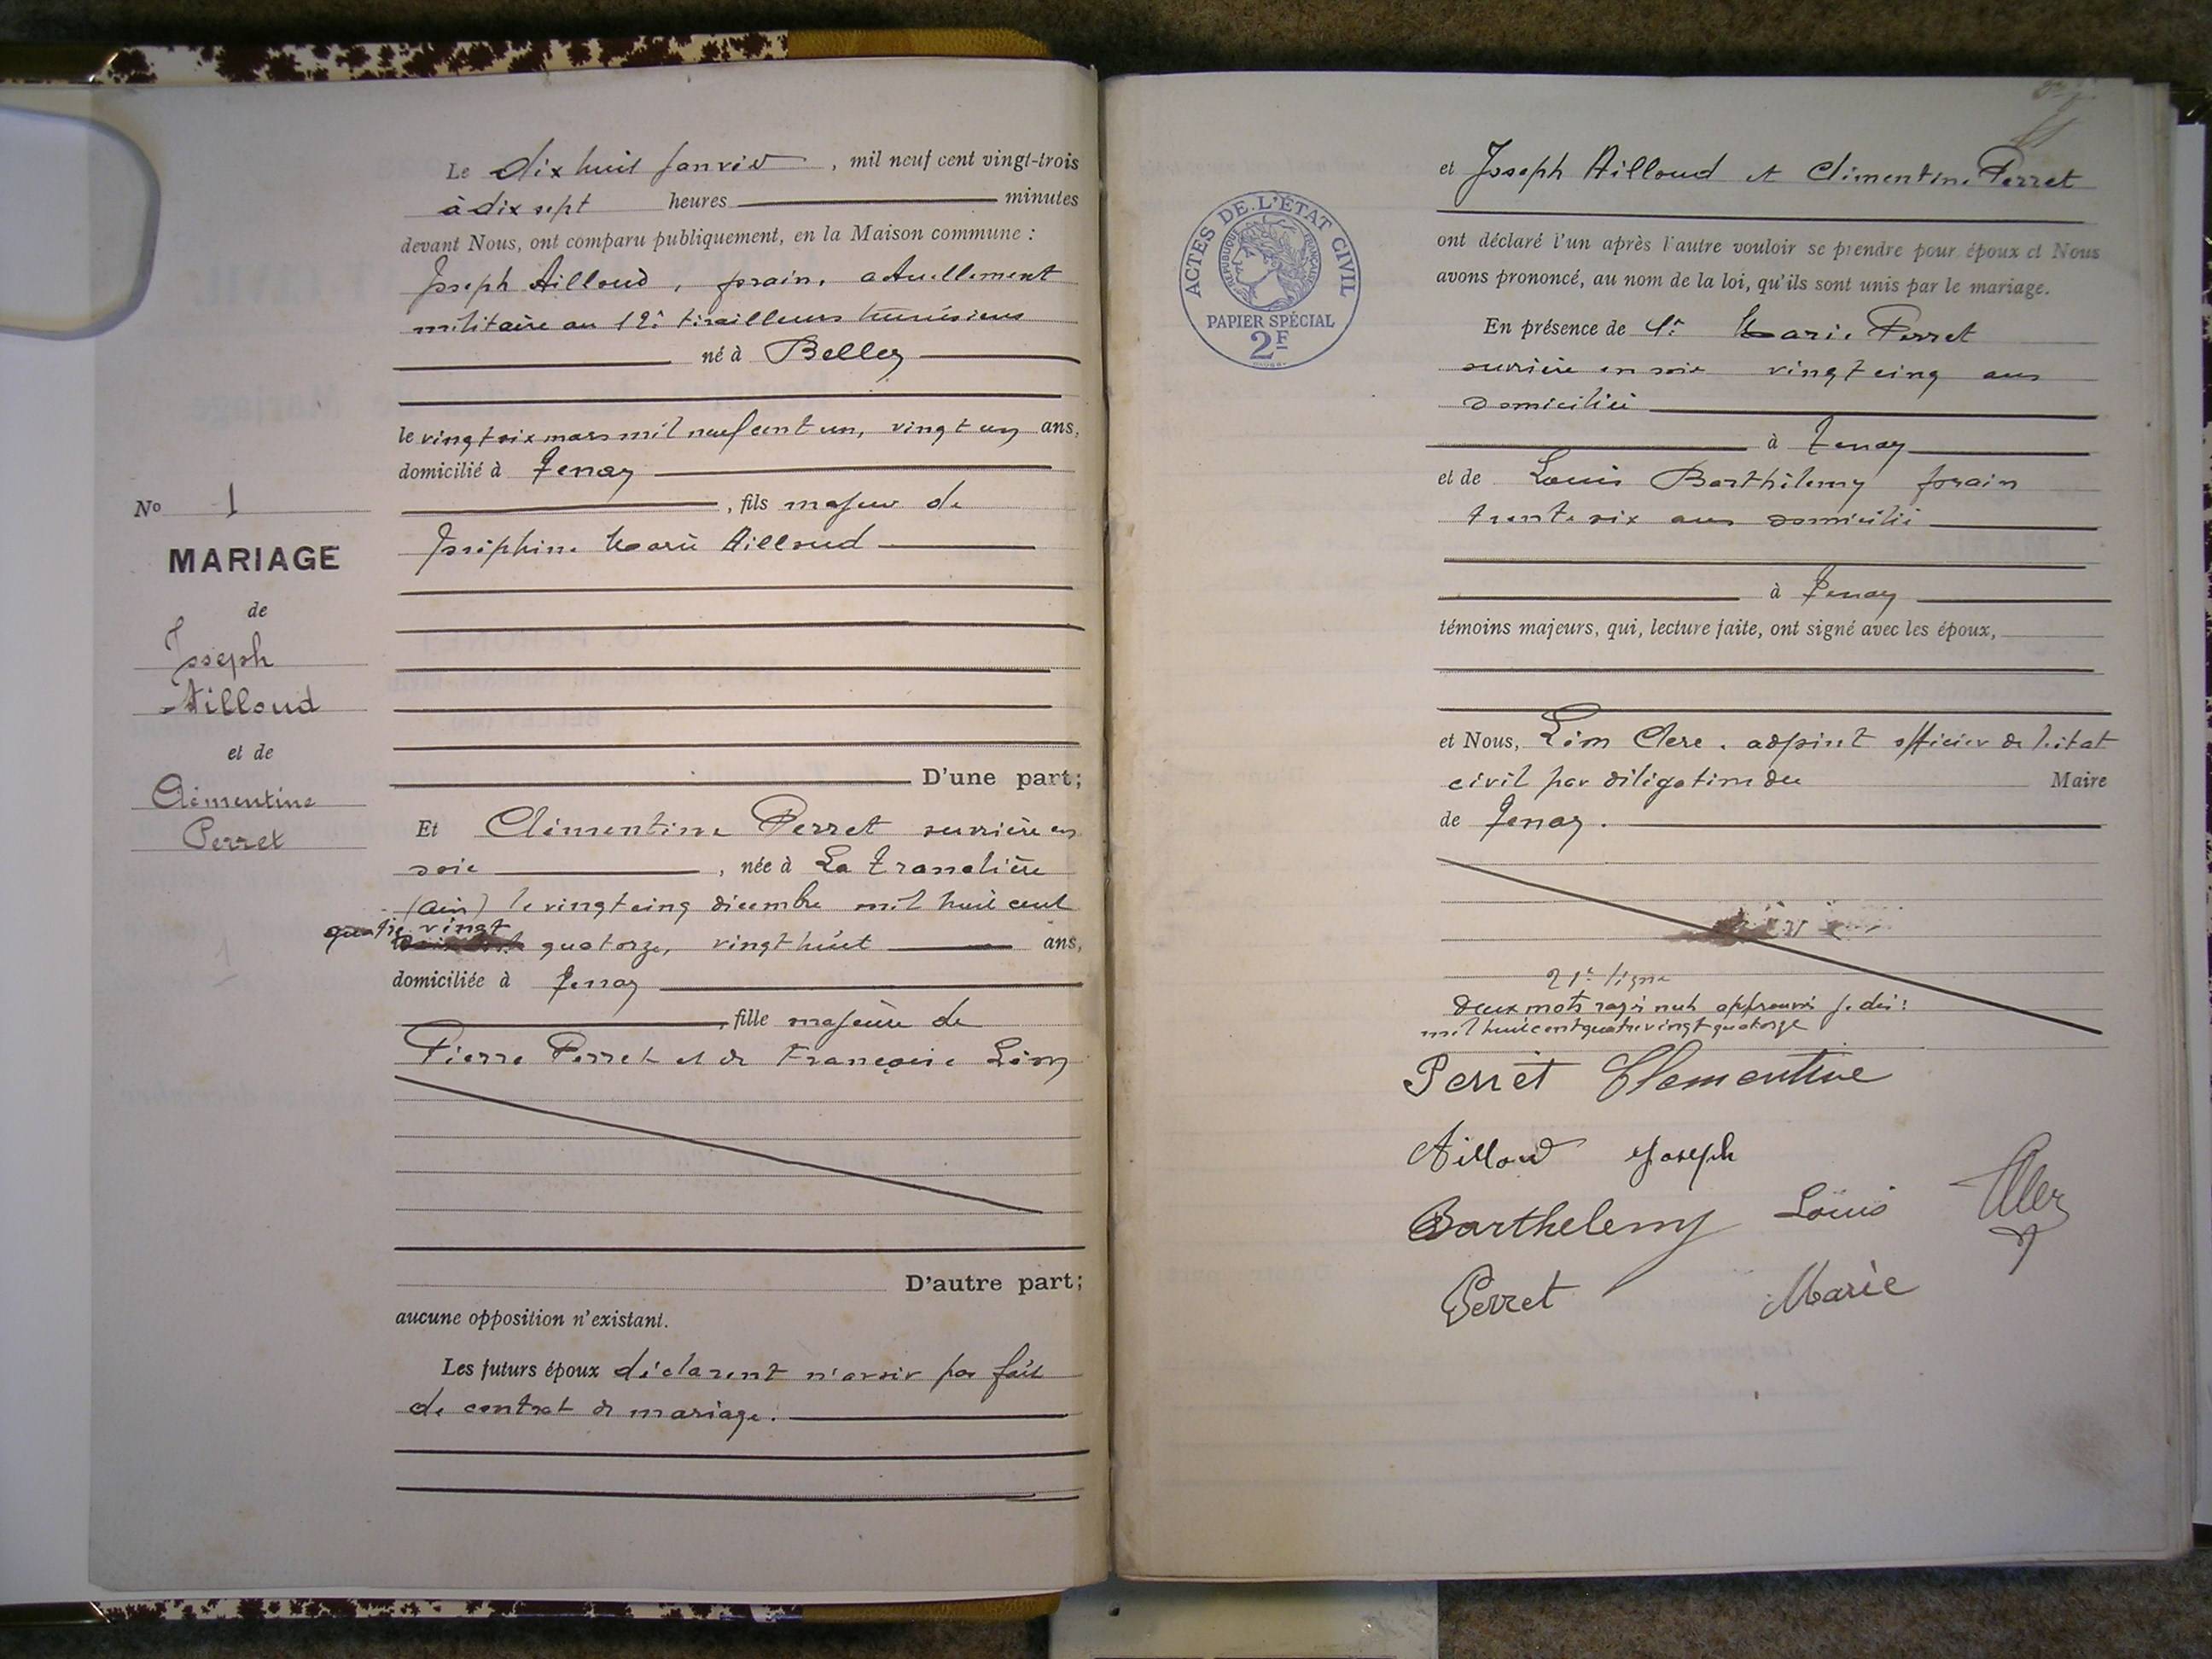 Le dix huit janvier, mil neuf cent vingt-trois
à dix sept heures minutes
devant Nous, ont comparu publiquement, en la Maison commune :
Joseph Ailloud, forain, actuellement
militaire au 12e tirailleurs tunisiens
né à Belley
le vingt six mars mil neuf cent un, vingt un ans,
domicilié à Tenay
, fils majeur de
Joséphine Marie Ailloud
No 1
MARIAGE
de
Joseph
Ailloud
et de
Clémentine
Perret
D'une part;
Et Clémentine Perret ouvrière en
soie, née à La Tranclière
(Ain) le vingt cinq décembre mil huit cent
quatre vingt
quatorze, vingt huit ans,
domiciliée à Tenay
, fille majeure de
Pierre Perret et de Françoise
D'autre part;
aucune opposition n'existant.
Les futurs époux déclarent n'avoir pas fait
de contrat de mariage.
et Joseph Ailloud et Clémentine Perret
ont déclaré l'un après l'autre vouloir se prendre pour époux et Nous
avons prononcé, au nom de la loi, qu'ils sont unis par le mariage.
ACTES DE L'ÉTAT CIVIL
RÉPUBLIQUE FRANÇAISE
PAPIER SPÉCIAL
2F
En présence de Marie Perret
ouvrière en soie vingt cinq ans
domiciliée
à Tenay
et de Louis Barthélemy forain
trente six ans domicilié
à Tenay
témoins majeurs, qui, lecture faite, ont signé avec les époux,
et Nous, Léon Clerc, adjoint officier de l'état
civil par délégation du Maire
de Tenay.
21e ligne
Deux mots rayés nuls approuvé je dis :
mil huit cent quatre vingt quatorze
Perret Clementine
Ailloud Joseph
Barthelemy Louis
Perret Marie